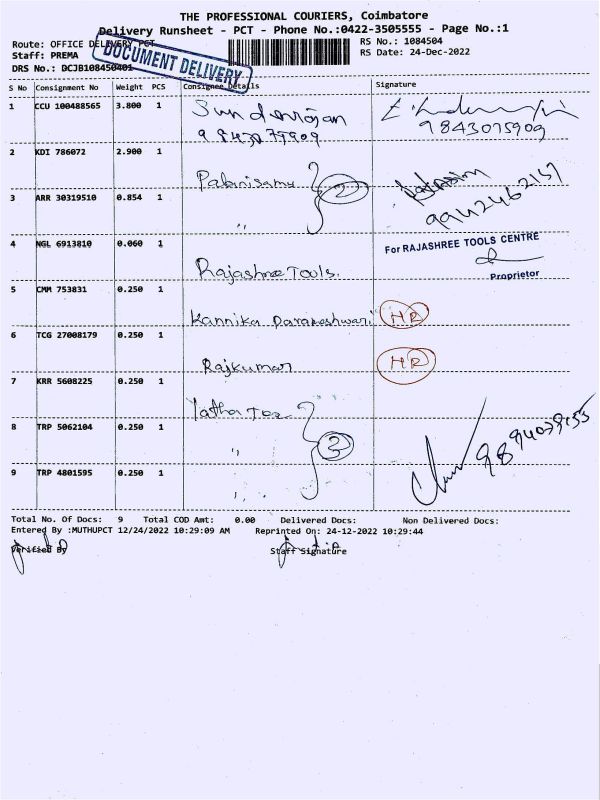 THE PROFESSIONAL COURIERS, Coimbatore
Delivery Runsheet - PCT - Phone No.:0422-3505555 - Page No.:1
Route: OFFICE DELIVERY PCT
RS No.: 1084504
Staff: PREMA
RS Date: 24-Dec-2022
DRS No.: DCJB108450401
DOCUMENT DELIVERY
S No Consignment No Weight PCS Consignee Details Signature
1 CCU 100488565 3.800 1 Sundarrajan
9843075909 9843075909
2 KDI 786072 2.900 1
Palanisamy 2
3 ARR 30319510 0.854 1 9942462167
"
4 NGL 6913810 0.060 1 For RAJASHREE TOOLS CENTRE
Rajashree Tools. Proprietor
5 CMM 753831 0.250 1
Kannika Parameshwari HR
6 TCG 27008179 0.250 1
Rajkumar HR
7 KRR 5608225 0.250 1
Latha Tex
8 TRP 5062104 0.250 1
" 3
9 TRP 4801595 0.250 1
"
Total No. Of Docs: 9 Total COD Amt: 0.00 Delivered Docs: Non Delivered Docs:
Entered By :MUTHUPCT 12/24/2022 10:29:09 AM Reprinted On: 24-12-2022 10:29:44
Verified By Staff Signature